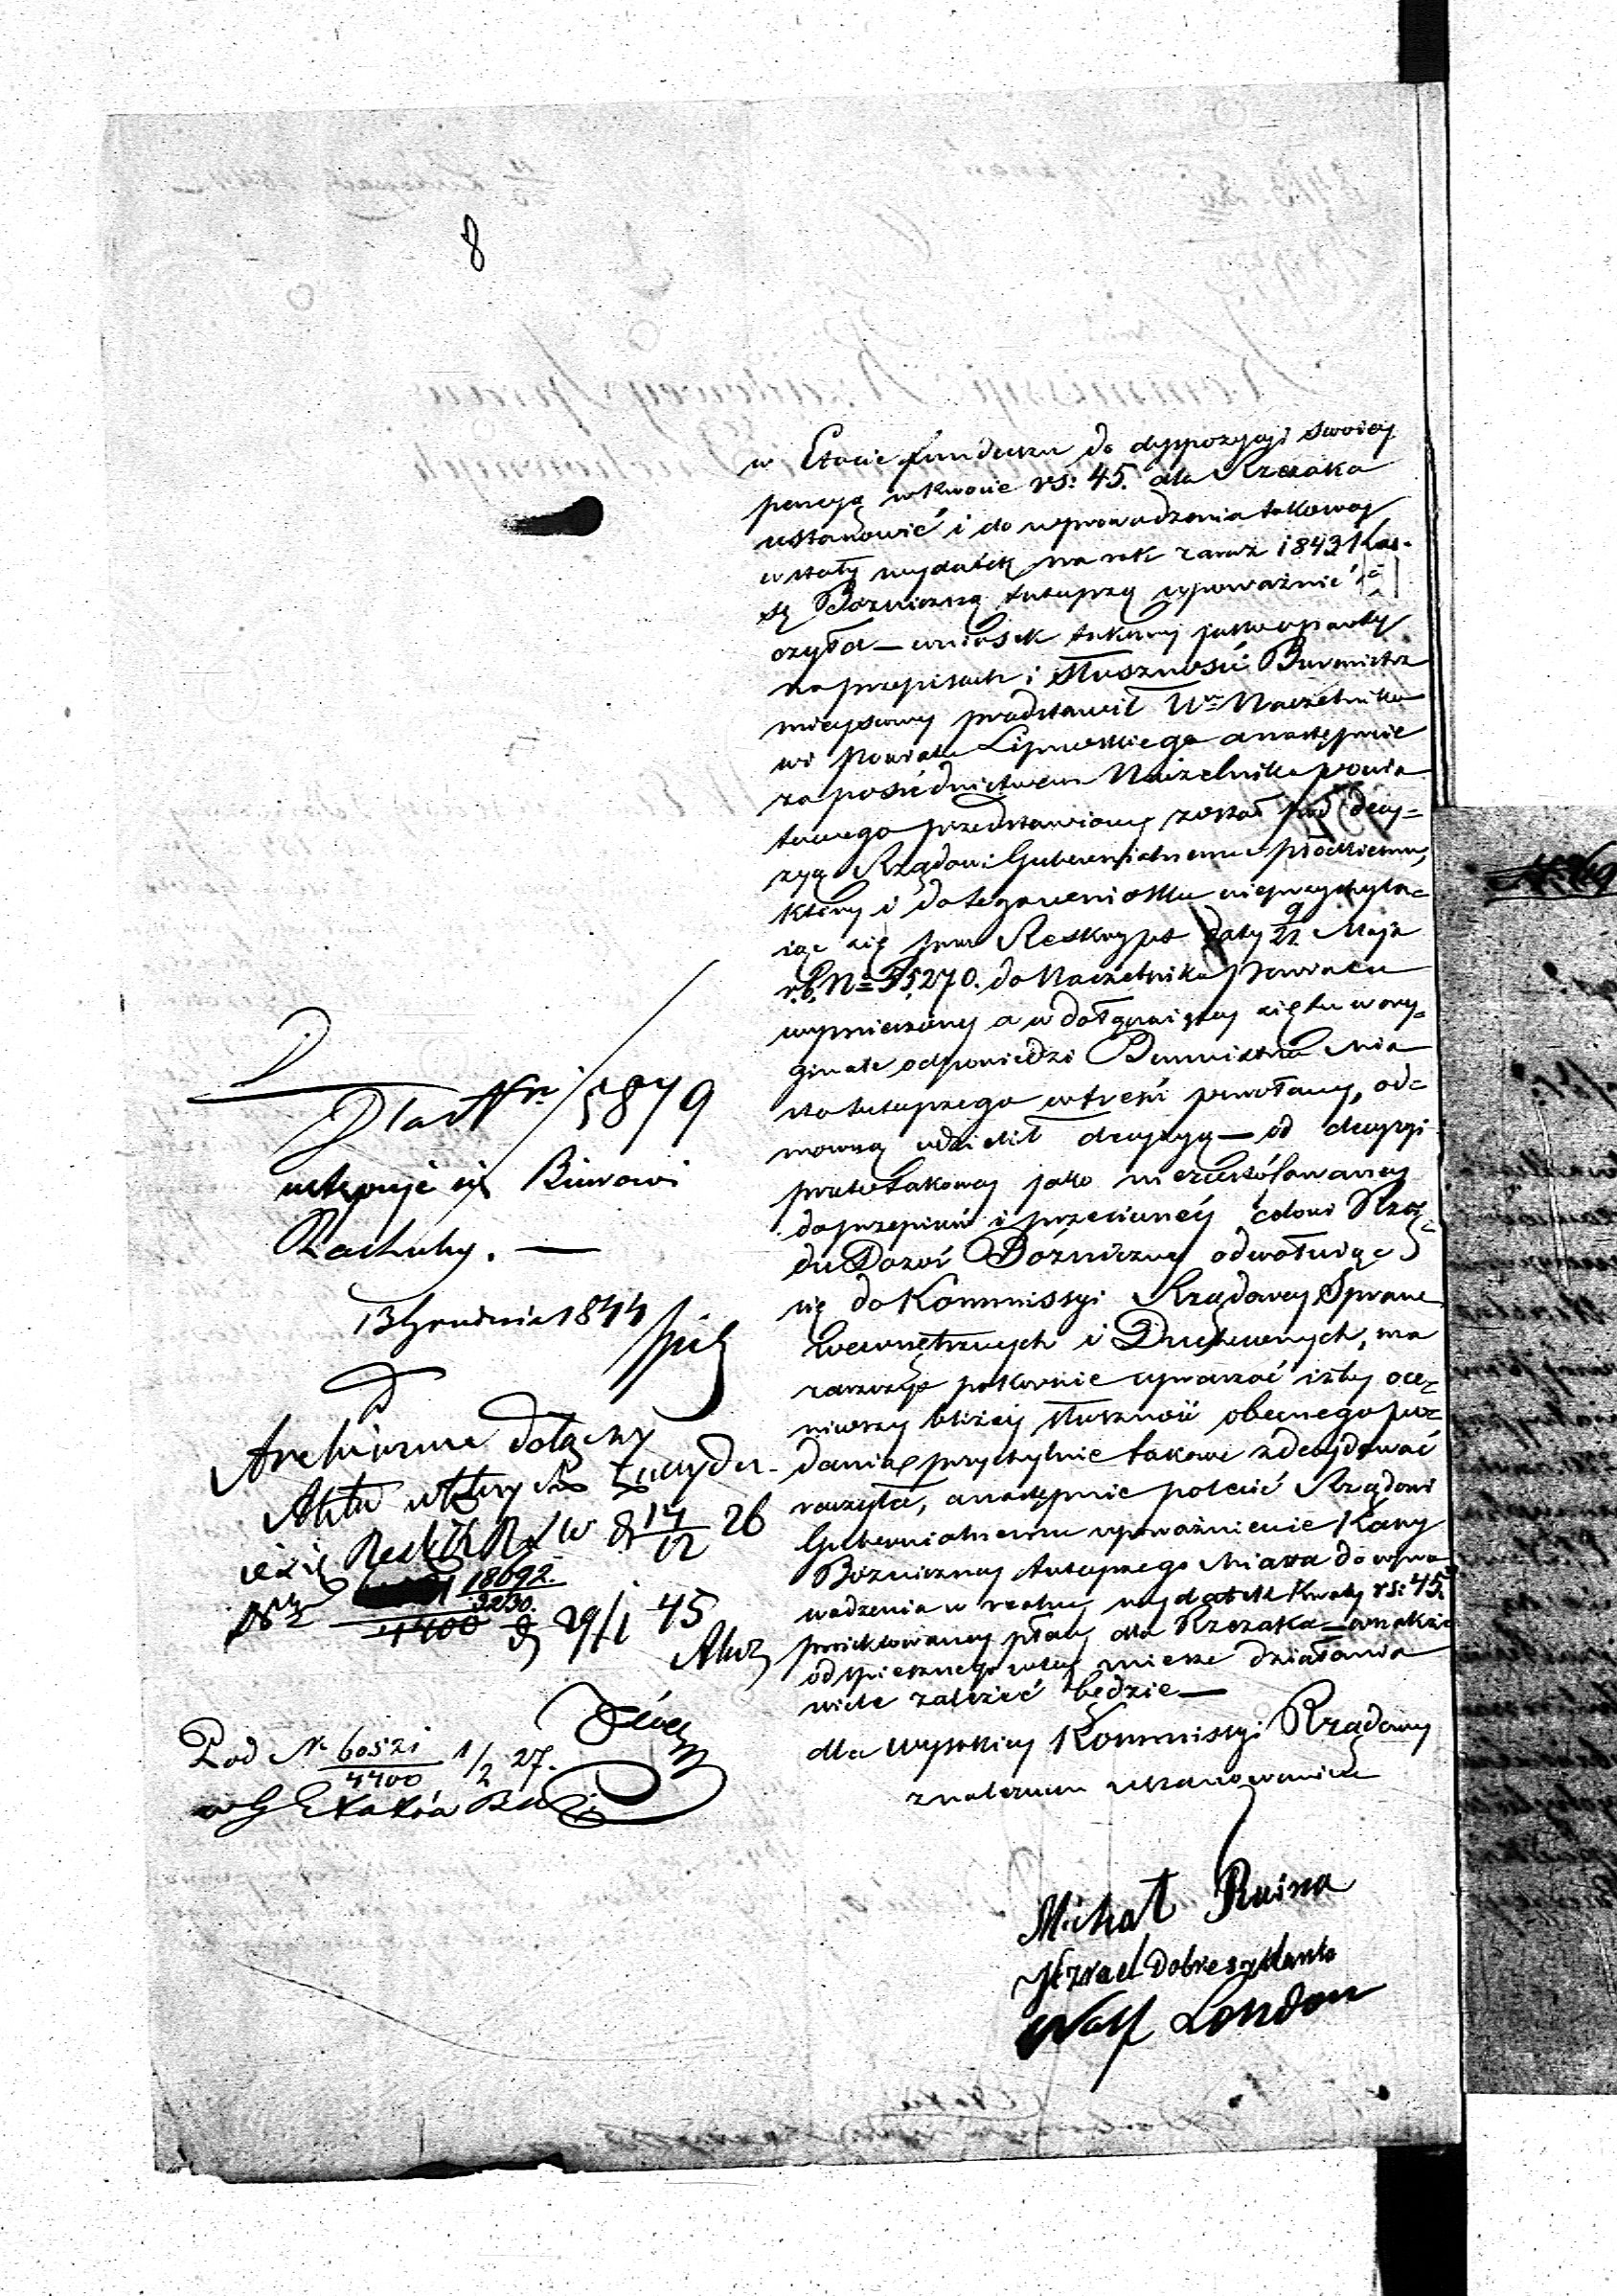 8
w Etacie funduszu do dyspozycji swoiey
pensyą w kwocie rs: 45. dla Rzezaka
ustanowić i do wprowadzenia takowey
w stały wydatek na rok zaraz 1843 Kas-
sę Bożniczną tuteyszą upoważnić ra-
czyła — wniosek takowy jako oparty
na przepisach i słuszności Burmistrz
mieyscowy przedstawił Wmu Naczelniko
wi Powiatu Lipnowskiego a następnie
za pośrednictwem Naczelnika powia
towego przedstawiony został pod decy=
zyą Rządowi Gubernialnemu płockiemu,
który i do tego wniosku nieprzychyla=
iąc się przez Reskrypt daty 9/21 Maja
r.b. N= 35,270. do Naczelnika Powiatu
wymierzony a w dołączaiącey się tu w ory=
ginale odpowiedzi Burmistrza Mia
sta tuteyszego w treści powołany, od=
mowną udzielił decyzyą — od decyzyi
przeto takowey jako niezastósowaney
do przepisów i przeciwnéy celowi Rzą=
du Dozór Bóżniczny odwołuiąc
się do Kommissyi Rządowey Spraw
Wewnętrznych i Duchownych, ma
zaszczyt pokornie upraszać iżby oce=
niwszy bliżéy słuszność obecnego po=
dania przychylnie takowe zdecydować
raczyła, a następnie polecić Rządowi
Gubernialnemu upoważnienie Kassy
Bożniczney tuteyszego Miasta do wpro
wadzenia w realny wydatek kwoty rs: 45.
proiektowaney płacy dla Rzezaka =
od spiesznego w tey mierze działania
wiele zależeć będzie —
dla Wysokiey Kommissyi Rządowey
z należnem uszanowaniem
Michał Raina
Jzrael Dobreszklanka
Wolf London
D
Dla Nr 5879
ustępuje się Biurowi
Rachuby. —
13 Grudnia 1844
Archiwum dołączy
Akta w których znaydu-
ie się Reskr. K R S W d 14/12 26
No 18692.
3230.
4400 d 29/1 45
Pod N 60521 1/2 27.
4400